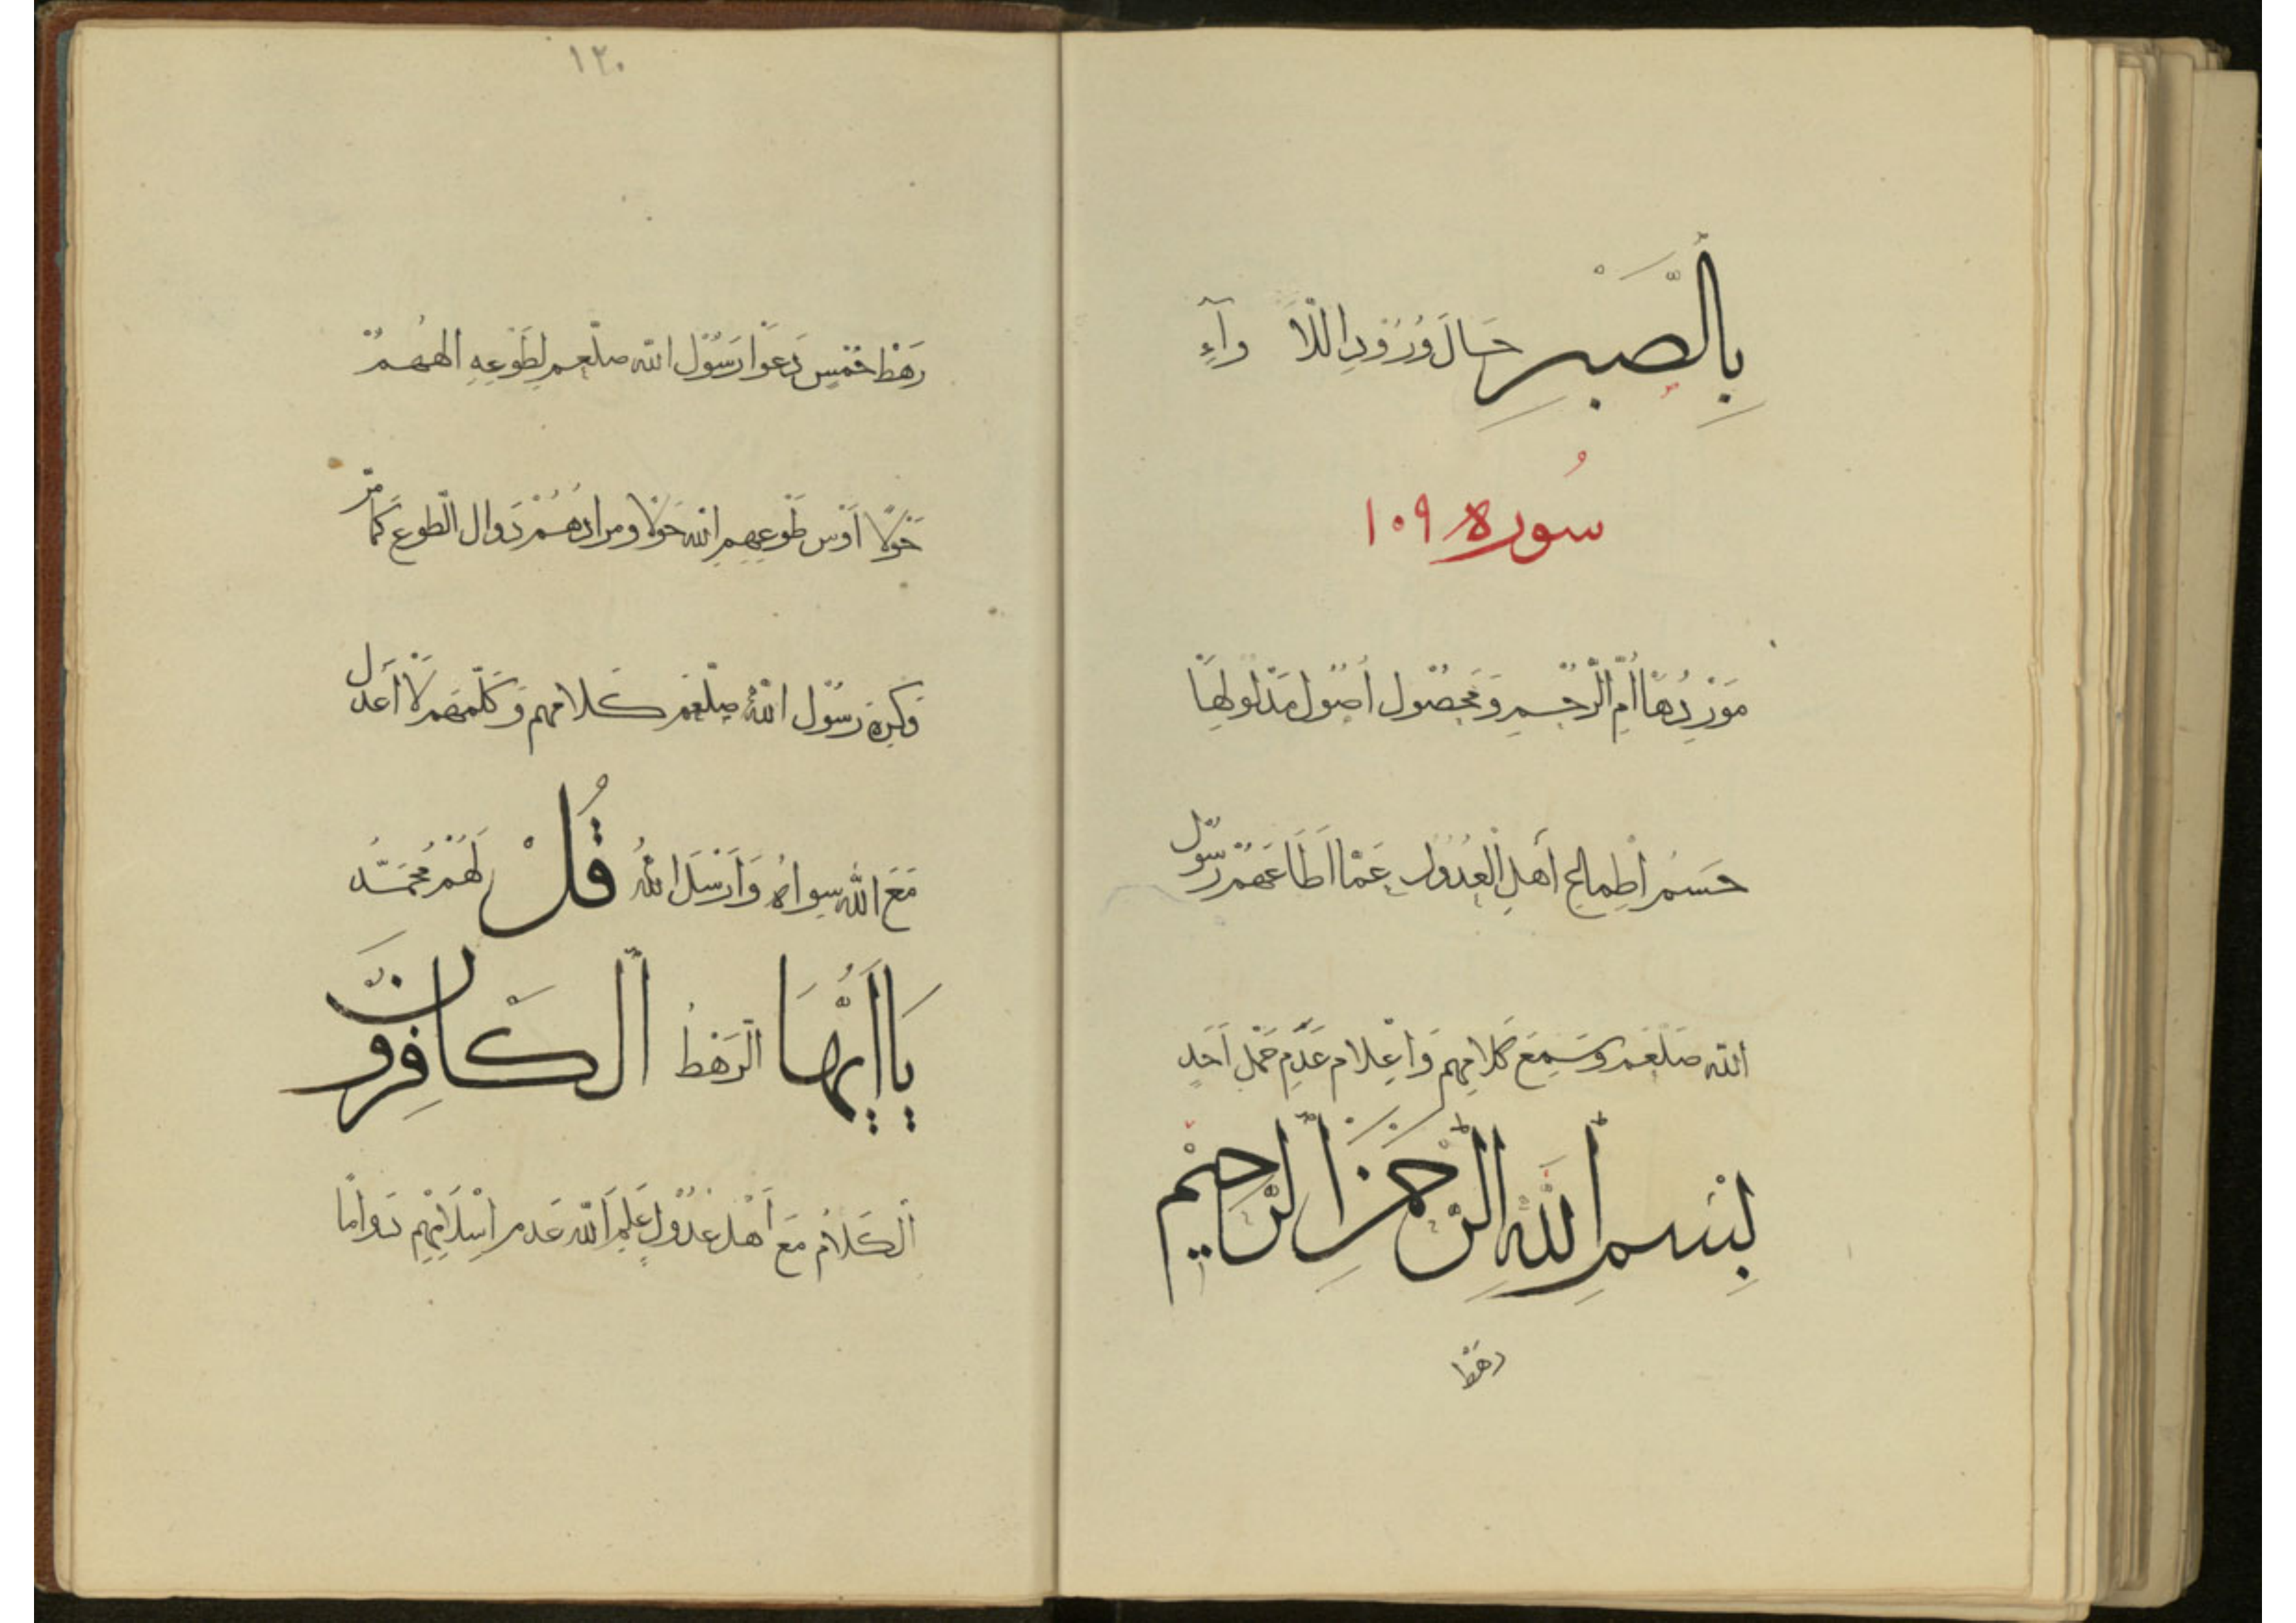 بِالصَّبْرِ حَالَ وُرُوْدِ اللَّأْوَآءِ
سُوره ١٠٩
مَوْرِدُهَا اُمُّ الرُّحْمِ وَمَحْصُوْل اُصُوْل مَدْلُوْلِهَا
حَسْمُ اَطْمَاعِ اَهْلِ الْعُدُوْلِ عَمَّا اَطَاعَهُمْ رَسُوْل
الله صلعم وَسَمِعَ كَلَامِهِم وَاِعْلَام عَدَمِ حَمْلِ اَحَدٍ
بِسْمِ اللّٰهِ الرَّحْمٰنِ الرَّحِيْمِ
رهط
١٢٠
رَهْطٌ حُمْسٌ دَعَوْا رَسُوْل الله صلعم لِطَوْعِهِ اِلٰهَهُمْ
حَوْلًا اَوْس طَوْعِهِمِ الله حَوْلًا ومرادهُمْ دَوام الطَّوع كَمَا مَرَّ
وَكَرِهَ رَسُوْل اللهِ صلعم كَلَامَهُم وَكَلَّمَهُم لَا اَعْدِل
مَعَ الله سِوَاهُ وَاَرْسَلَ اللهُ قُلْ لَهُمْ مُحَمَّدُ
يَا اَيُّهَا الرَهْطُ الْكَافِرُوْنَ
الكَلَامُ مَعَ اَهْلِ عُدُوْلٍ عَلِمَ الله عَدَم اِسْلَامِهِم دَوَامًا